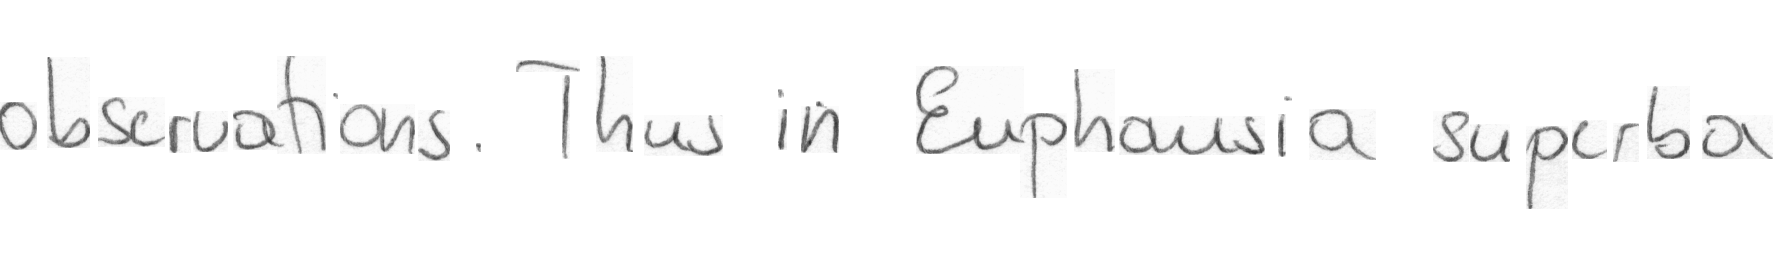 observations. Thus in Euphausia superba